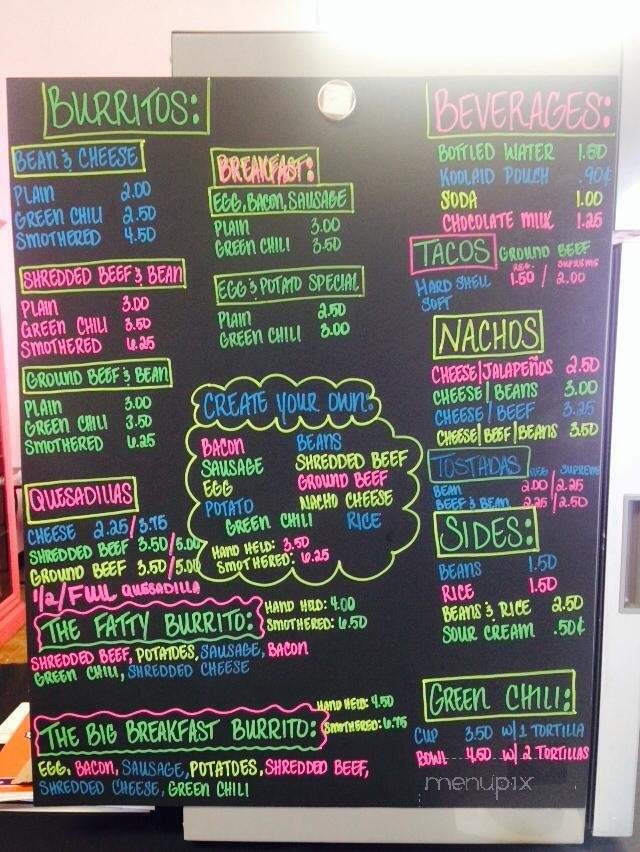 BURRITOS:
BEAN & CHEESE
PLAIN 2.00
GREEN CHILI 2.50
SMOTHERED 4.50
SHREDDED BEEF & BEAN
PLAIN 3.00
GREEN CHILI 3.50
SMOTHERED 6.25
GROUND BEEF & BEAN
PLAIN 3.00
GREEN CHILI 3.50
SMOTHERED 6.25
QUESADILLAS
CHEESE 2.25/3.75
SHREDDED BEEF 3.50/5.00
GROUND BEEF 3.50/5.00
1/2/FULL QUESADILLA
BREAKFAST:
EGG, BACON, SAUSAGE
PLAIN 3.00
GREEN CHILI 3.50
EGG & POTATO SPECIAL
PLAIN 2.50
GREEN CHILI 3.00
CREATE YOUR OWN:
BACON BEANS
SAUSAGE SHREDDED BEEF
EGG GROUND BEEF
POTATO NACHO CHEESE
GREEN CHILI RICE
HAND HELD: 3.50
SMOTHERED: 6.25
THE FATTY BURRITO:
HAND HELD: 4.00
SMOTHERED: 6.50
SHREDDED BEEF, POTATOES, SAUSAGE, BACON
GREEN CHILI, SHREDDED CHEESE
THE BIG BREAKFAST BURRITO:
HAND HELD: 4.50
SMOTHERED: 6.75
EGG, BACON, SAUSAGE, POTATOES, SHREDDED BEEF,
SHREDDED CHEESE, GREEN CHILI
BEVERAGES:
BOTTLED WATER 1.50
KOOLAID POUCH .90¢
SODA 1.00
CHOCOLATE MILK 1.25
TACOS GROUND BEEF
REG. SUPREME
HARD SHELL 1.50 / 2.00
SOFT
NACHOS
CHEESE/JALAPEÑOS 2.50
CHEESE/BEANS 3.00
CHEESE/BEEF 3.25
CHEESE/BEEF/BEANS 3.50
TOSTADAS REG. SUPREME
BEAN 2.00/2.25
BEEF & BEAN 2.25/2.50
SIDES:
BEANS 1.50
RICE 1.50
BEANS & RICE 2.50
SOUR CREAM .50¢
GREEN CHILI:
CUP 3.50 W/ 1 TORTILLA
BOWL 4.50 W/ 2 TORTILLAS
menupix